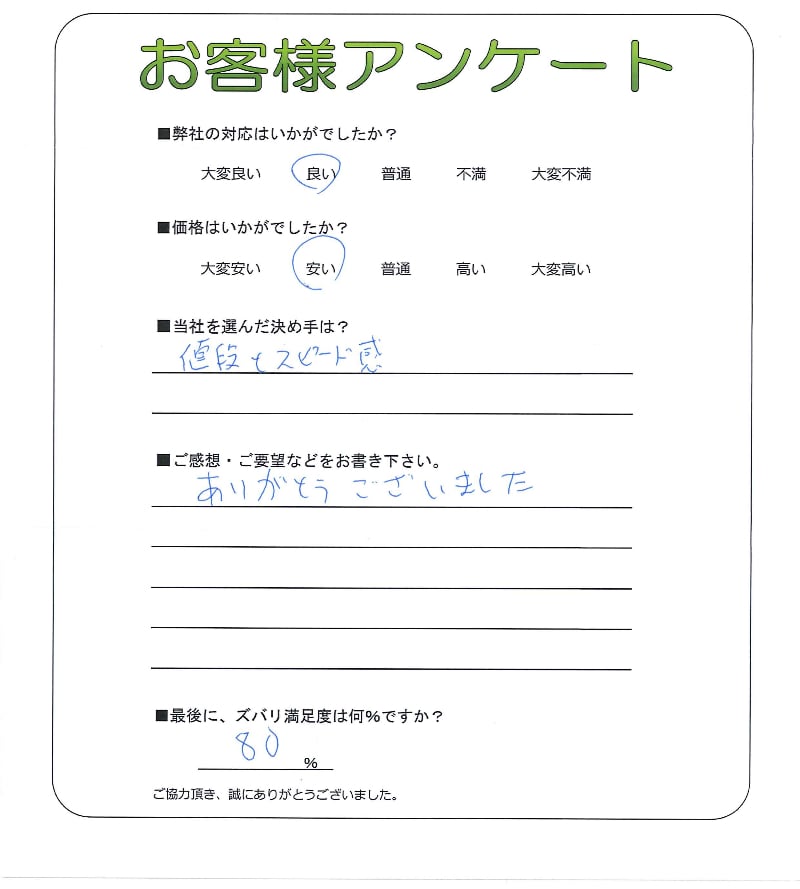 お客様アンケート
■弊社の対応はいかがでしたか？
大変良い 良い 普通 不満 大変不満
■価格はいかがでしたか？
大変安い 安い 普通 高い 大変高い
■当社を選んだ決め手は？
値段とスピード感
■ご感想・ご要望などをお書き下さい。
ありがとうございました
■最後に、ズバリ満足度は何%ですか？
80 %
ご協力頂き、誠にありがとうございました。